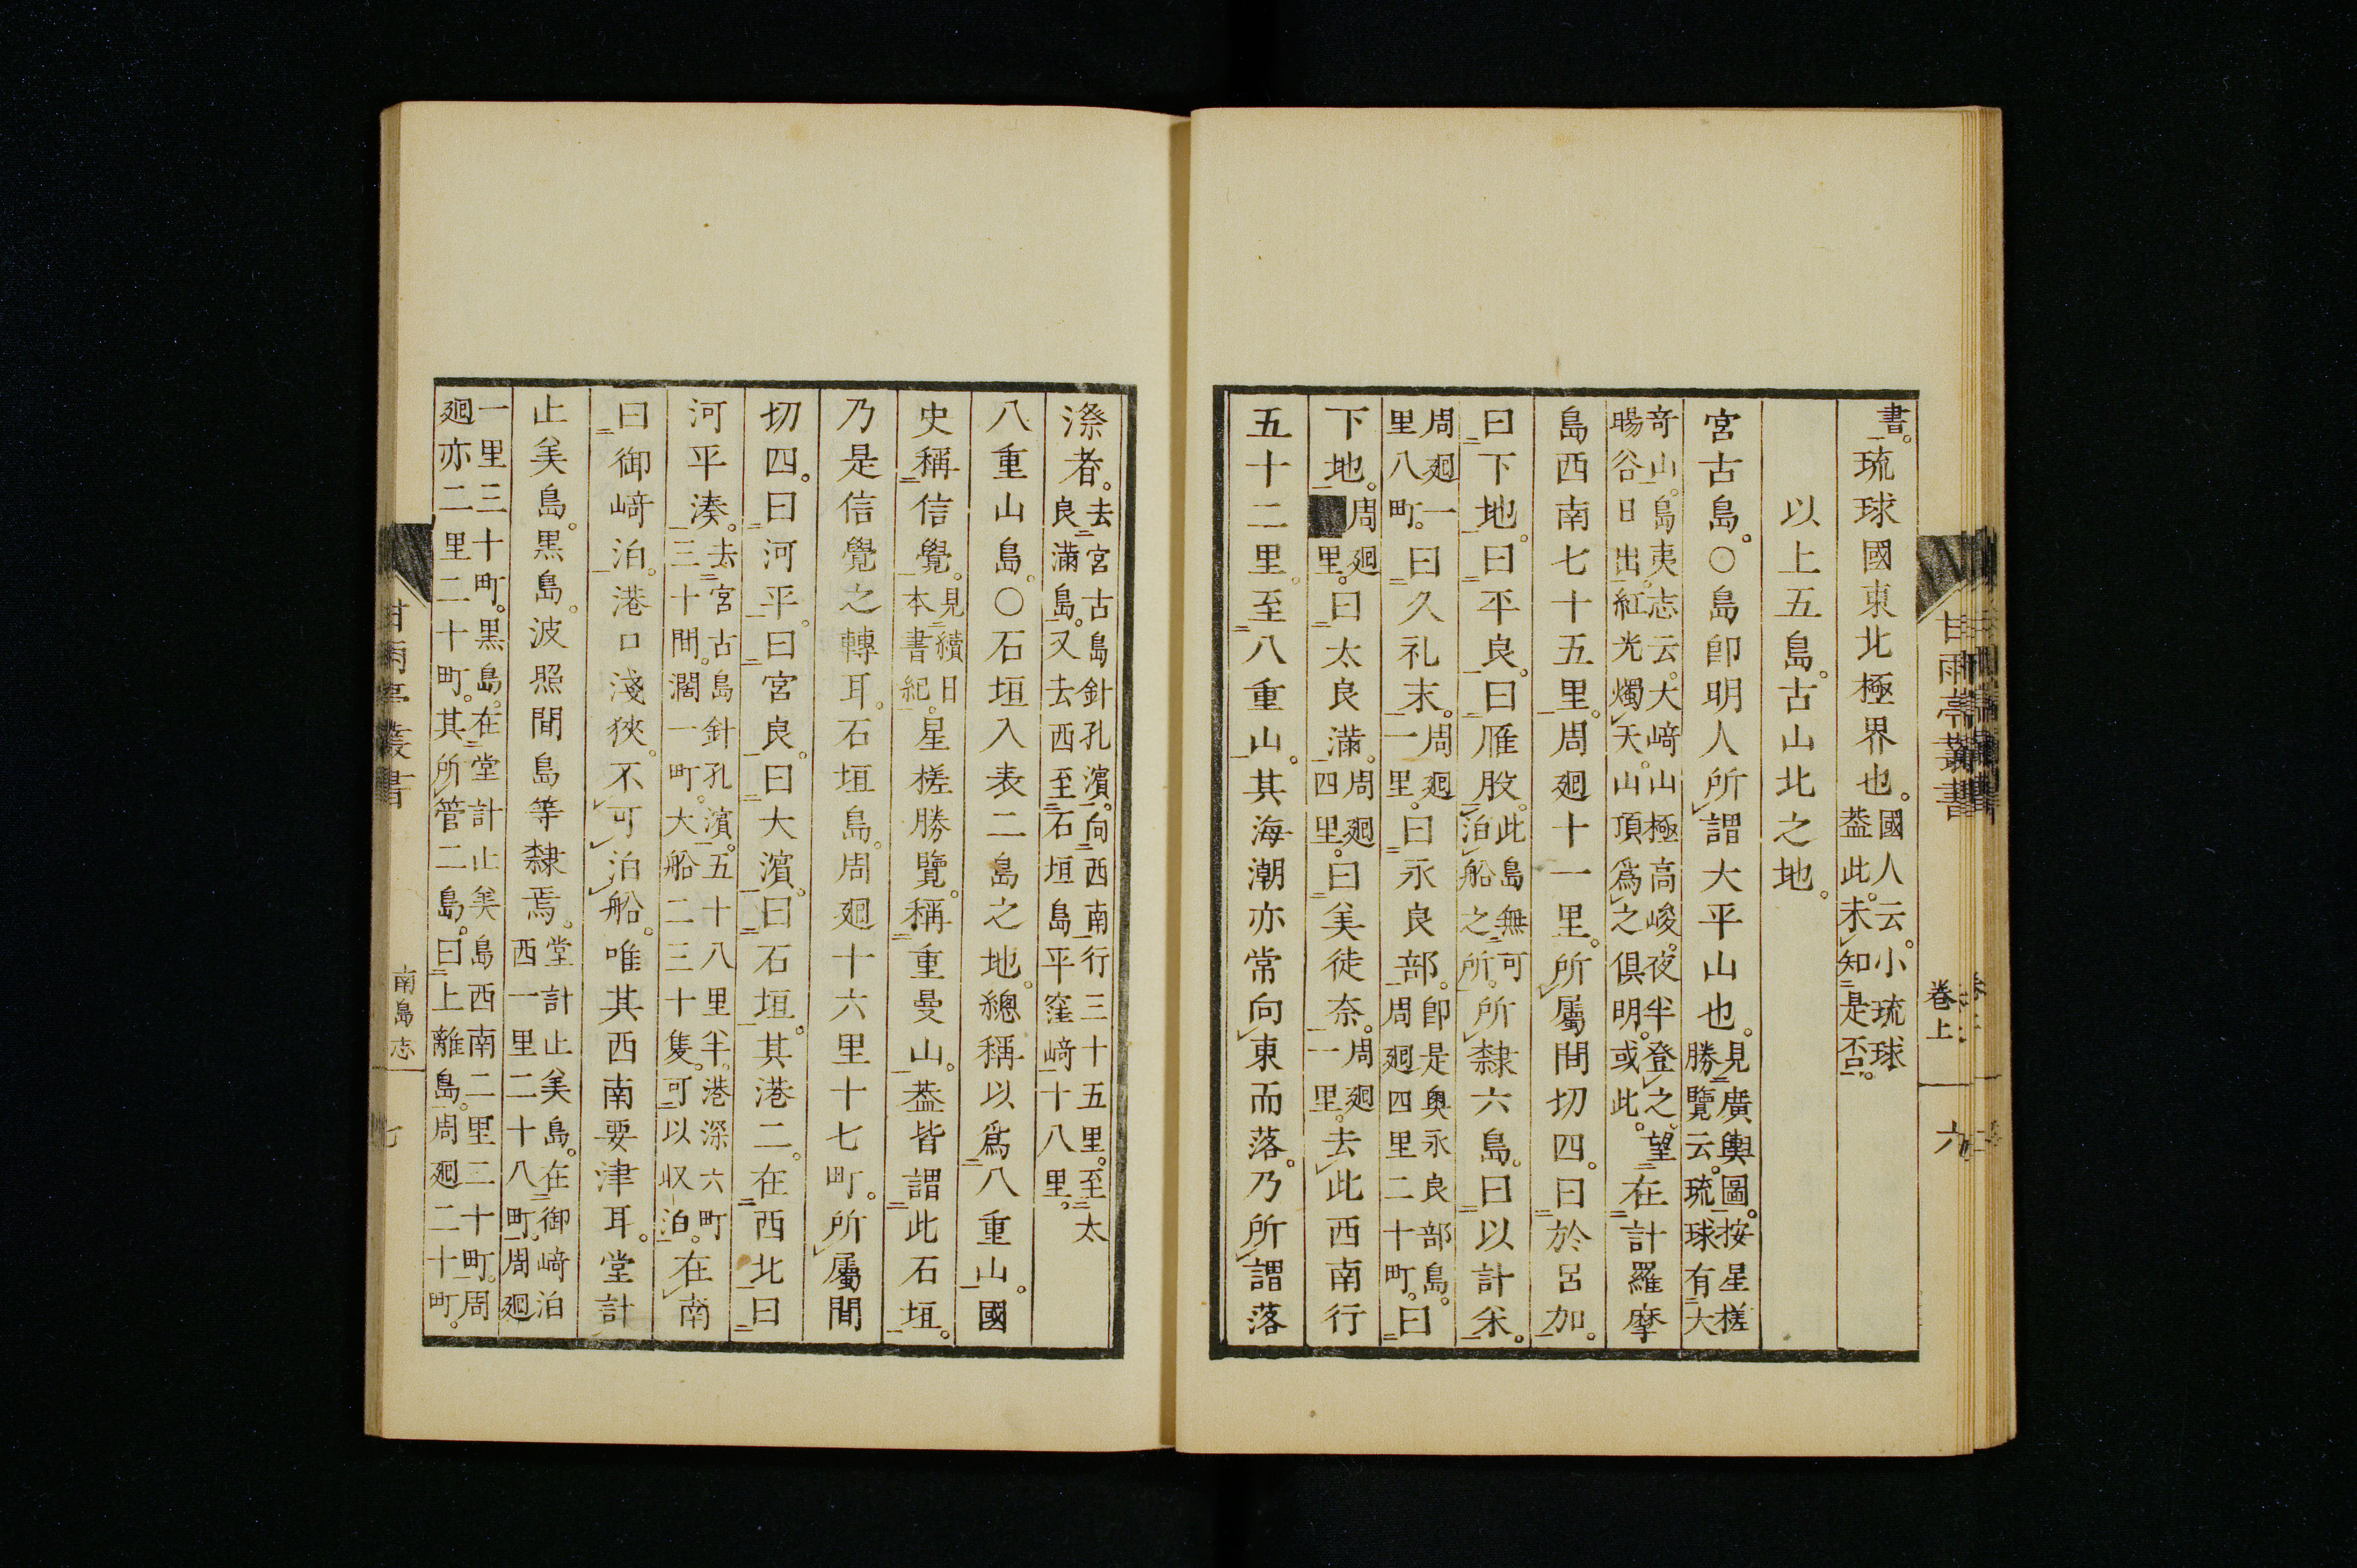 書。琉球國東北極界也。國人云。小琉球蓋此。未知是否。
以上五島。古山北之地。
宮古島。○島卽明人所謂大平山也。見廣輿圖。按星槎勝覽云。琉球有大
奇山。島夷志云。大﨑山極高峻。夜半登之。望暘谷日出。紅光燭天。山頂爲之俱明。或此。在計羅摩
島西南七十五里。周廻十一里。所屬間切四。曰於呂加。
曰下地。曰平良。曰雁股。此島無可泊船之所。所隸六島。曰以計米。
周廻一里八町。曰久礼末。周廻一里。曰永良部。卽是奧永良部島。周廻四里二十町。曰
下地。周廻■里。曰太良滿。周廻四里。曰美徒奈。周廻一里。去此西南行
五十二里。至八重山。其海潮亦常向東而落。乃所謂落
漈者。去宮古島針孔濵。向西南行三十五里。至太良滿島。又去西至石垣島平窪﨑十八里。
八重山島。○石垣入表二島之地。總稱以爲八重山。國
史稱信覺。見續日本書紀。星槎勝覽。稱重曼山。蓋皆謂此石垣。
乃是信覺之轉耳。石垣島。周廻十六里十七町。所屬間
切四。曰河平。曰宮良。曰大濵。曰石垣。其港二。在西北曰
河平湊。去宮古島針孔濵。五十八里半。港深六町三十間。濶一町。大船二三十隻。可以収泊。在南
曰御﨑泊。港口淺狹。不可泊船。唯其西南要津耳。堂計
止美島。黒島。波照間島等隸焉。堂計止美島。在御﨑泊西一里二十八町。周廻
一里三十町。黒島。在堂計止美島西南二里二十町。周廻亦二里二十町。其所管二島。曰上離島。周廻二十町。
甘雨亭叢書
卷上
六
甘雨亭叢書
南島志
七